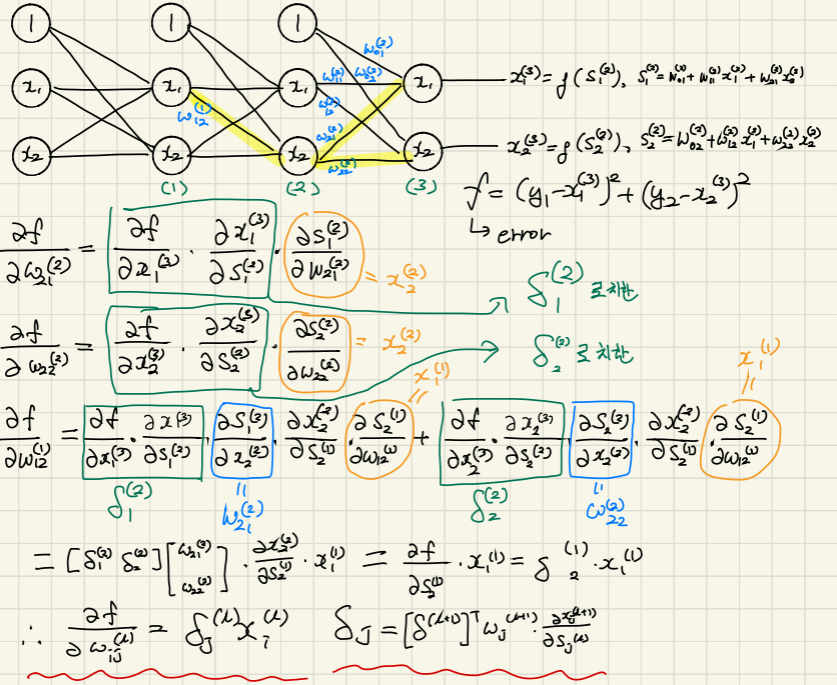 1 1 1
x₁ x₁ x₁ x₁
x₂ x₂ x₂ x₂
w₀₁⁽²⁾
w₁₁⁽²⁾ w₀₂⁽²⁾
w₁₂⁽²⁾
w₁₂⁽¹⁾
w₂₁⁽²⁾
w₂₂⁽²⁾
x₁⁽³⁾ = f(S₁⁽²⁾), S₁⁽²⁾ = w₀₁⁽²⁾ + w₁₁⁽²⁾x₁⁽²⁾ + w₂₁⁽²⁾x₂⁽²⁾
x₂⁽³⁾ = f(S₂⁽²⁾), S₂⁽²⁾ = w₀₂⁽²⁾ + w₁₂⁽²⁾x₁⁽²⁾ + w₂₂⁽²⁾x₂⁽²⁾
(1) (2) (3)
f = (y₁-x₁⁽³⁾)² + (y₂-x₂⁽³⁾)²
↳ error
∂f/∂w₂₁⁽²⁾ = ∂f/∂x₁⁽³⁾ · ∂x₁⁽³⁾/∂S₁⁽²⁾ · ∂S₁⁽²⁾/∂w₂₁⁽²⁾ = x₂⁽²⁾
δ₁⁽²⁾ 로 치환
∂f/∂w₂₂⁽²⁾ = ∂f/∂x₂⁽³⁾ · ∂x₂⁽³⁾/∂S₂⁽²⁾ · ∂S₂⁽²⁾/∂w₂₂⁽²⁾ = x₂⁽²⁾
δ₂⁽²⁾ 로 치환
x₁⁽¹⁾ x₁⁽¹⁾
∂f/∂w₁₂⁽¹⁾ = ∂f/∂x₁⁽³⁾ · ∂x⁽³⁾/∂S₁⁽²⁾ · ∂S₁⁽²⁾/∂x₂⁽²⁾ · ∂x₂⁽²⁾/∂S₂⁽¹⁾ · ∂S₂⁽¹⁾/∂w₁₂⁽¹⁾ + ∂f/∂x₂⁽³⁾ · ∂x₂⁽³⁾/∂S₂⁽²⁾ · ∂S₂⁽²⁾/∂x₂⁽²⁾ · ∂x₂⁽²⁾/∂S₂⁽¹⁾ · ∂S₂⁽¹⁾/∂w₁₂⁽¹⁾
δ₁⁽²⁾ w₂₁⁽²⁾ δ₂⁽²⁾ w₂₂⁽²⁾
= [δ₁⁽²⁾ δ₂⁽²⁾] [w₂₁⁽²⁾ w₂₂⁽²⁾] · ∂x₂⁽²⁾/∂S₂⁽¹⁾ · x₁⁽¹⁾ = ∂f/∂S₂⁽¹⁾ · x₁⁽¹⁾ = δ₂⁽¹⁾ · x₁⁽¹⁾
∴ ∂f/∂wᵢⱼ⁽ˡ⁾ = δⱼ⁽ˡ⁾xᵢ⁽ˡ⁾ δⱼ = [δ⁽ˡ⁺¹⁾]ᵀ wⱼ⁽ˡ⁺¹⁾ · ∂xⱼ⁽ˡ⁺¹⁾/∂Sⱼ⁽ˡ⁾